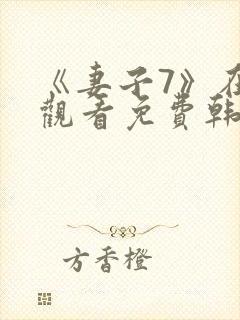 《妻子7》在
觀看免費韓
方香橙